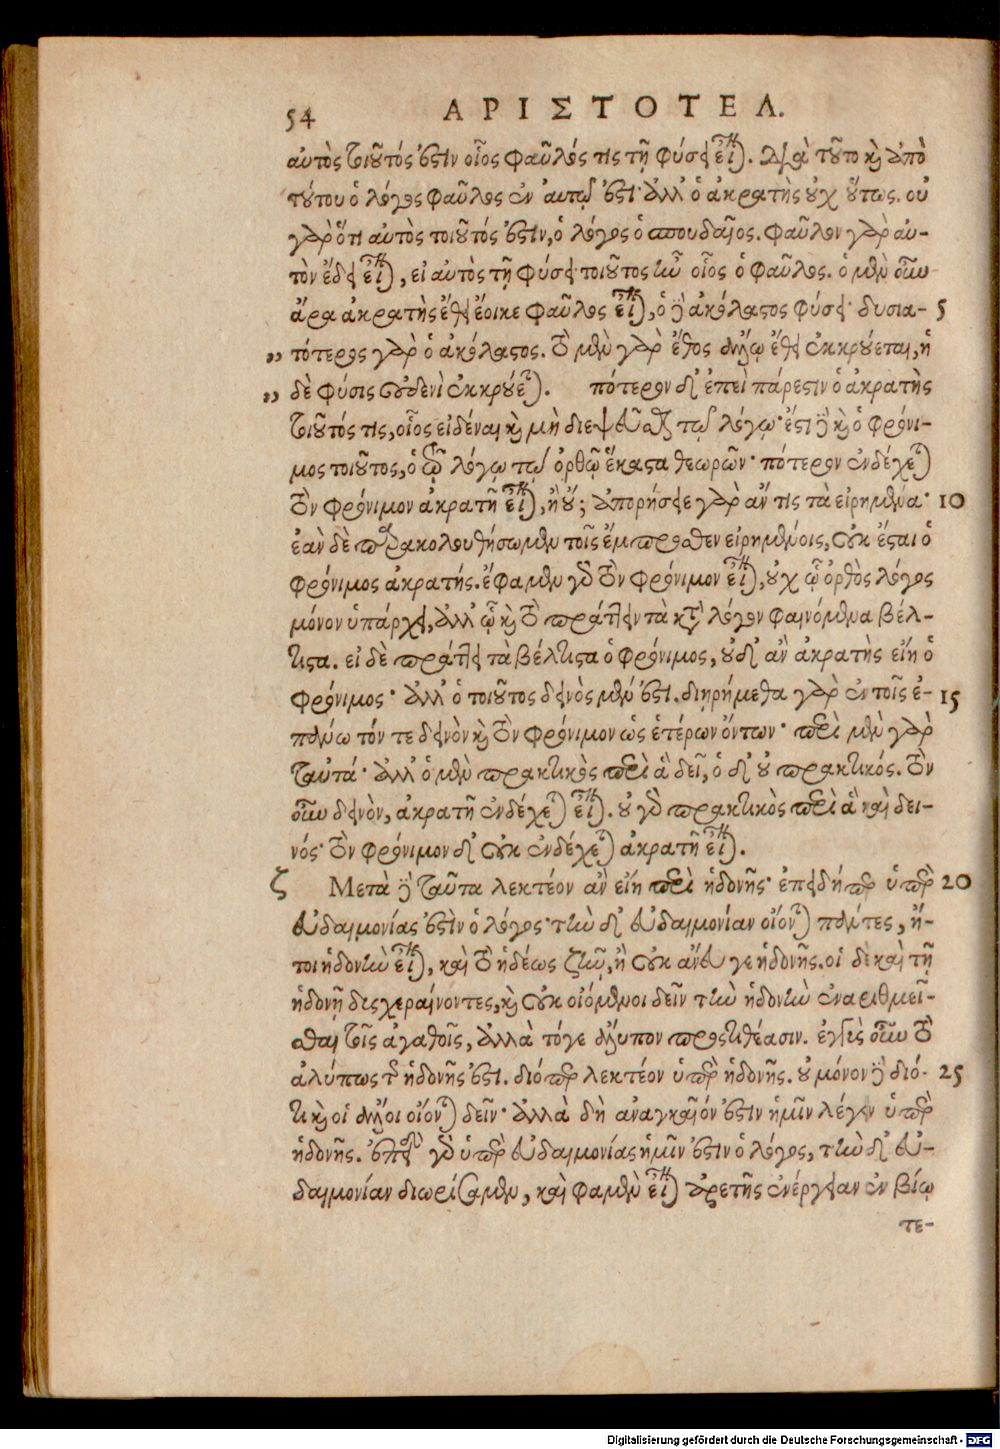 54 ΑΡΙΣΤΟΤΕΛ.
αὐτὸς τοιοῦτός ἐστιν οἷος φαῦλός τις τῇ φύσει εἶναι. διὰ τοῦτο καὶ ἀπὸ
τούτου ὁ λόγος φαῦλος ἐν αὐτῷ ἐστι· ἀλλ' ὁ ἀκρατὴς οὐχ οὕτως. οὐ
γὰρ ὅτι αὐτὸς τοιοῦτός ἐστιν, ὁ λόγος ὁ σπουδαῖος. φαῦλον γὰρ αὐ-
τὸν ἔδει εἶναι, εἰ αὐτὸς τῇ φύσει τοιοῦτος ἦν οἷος ὁ φαῦλος. ὁ μὲν οὖν
ἄρα ἀκρατὴς ἔθει ἔοικε φαῦλος εἶναι, ὁ δὲ ἀκόλαστος φύσει· δυσια- 5
„ τότερος γὰρ ὁ ἀκόλαστος. τὸ μὲν γὰρ ἔθος ἄλλῳ ἔθει ἐκκρούεται, ἡ
„ δὲ φύσις οὐδενὶ ἐκκρούεται. πότερον δ' ἐπεὶ πάρεστιν ὁ ἀκρατὴς
τοιοῦτός τις, οἷος εἰδέναι καὶ μὴ διεψεῦσθαι τῷ λόγῳ· ἔστι δὲ καὶ ὁ φρόνι-
μος τοιοῦτος, ὁ τῷ λόγῳ τῷ ὀρθῷ ἕκαστα θεωρῶν· πότερον ἐνδέχεται
τὸν φρόνιμον ἀκρατῆ εἶναι, ἢ οὔ; ἀπορήσειε γὰρ ἄν τις τὰ εἰρημένα· 10
ἐὰν δὲ παρακολουθήσωμεν τοῖς ἔμπροσθεν εἰρημένοις, οὐκ ἔσται ὁ
φρόνιμος ἀκρατής. ἔφαμεν γὰρ τὸν φρόνιμον εἶναι, οὐχ ᾧ ὀρθὸς λόγος
μόνον ὑπάρχει, ἀλλ' ᾧ καὶ τὸ πράττειν τὰ κατὰ λόγον φαινόμενα βέλ-
τιστα. εἰ δὲ πράττει τὰ βέλτιστα ὁ φρόνιμος, οὐδ' ἂν ἀκρατὴς εἴη ὁ
φρόνιμος· ἀλλ' ὁ τοιοῦτος δεινὸς μέν ἐστι. διῃρήμεθα γὰρ ἐν τοῖς ἐ- 15
πάνω τόν τε δεινὸν καὶ τὸν φρόνιμον ὡς ἑτέρων ὄντων· περὶ μὲν γὰρ
ταὐτά· ἀλλ' ὁ μὲν πρακτικὸς περὶ ἃ δεῖ, ὁ δ' οὐ πρακτικός. τὸν
οὖν δεινὸν, ἀκρατῆ ἐνδέχεται εἶναι. οὐ γὰρ πρακτικὸς περὶ ἃ καὶ δει-
νός· τὸν φρόνιμον δ' οὐκ ἐνδέχεται ἀκρατῆ εἶναι.
ζ Μετὰ δὲ ταῦτα λεκτέον ἂν εἴη περὶ ἡδονῆς· ἐπειδήπερ ὑπὲρ 20
εὐδαιμονίας ἐστὶν ὁ λόγος· τὴν δ' εὐδαιμονίαν οἴονται πάντες, ἤ-
τοι ἡδονὴν εἶναι, καὶ τὸ ἡδέως ζῆν, ἢ οὐκ ἄνευ γε ἡδονῆς. οἱ δὲ καὶ τῇ
ἡδονῇ δυσχεραίνοντες, καὶ οὐκ οἰόμενοι δεῖν τὴν ἡδονὴν ἐναριθμεῖ-
σθαι τοῖς ἀγαθοῖς, ἀλλὰ τόγε ἄλυπον προστιθέασιν. ἐγγὺς οὖν τὸ
ἀλύπως τῆς ἡδονῆς ἐστι. διόπερ λεκτέον ὑπὲρ ἡδονῆς. οὐ μόνον δὲ διό- 25
τι καὶ οἱ ἄλλοι οἴονται δεῖν· ἀλλὰ δὴ ἀναγκαῖόν ἐστιν ἡμῖν λέγειν ὑπὲρ
ἡδονῆς. ἐπεὶ γὰρ ὑπὲρ εὐδαιμονίας ἡμῖν ἐστιν ὁ λόγος, τὴν δ' εὐ-
δαιμονίαν διωρίσαμεν, καὶ φαμὲν εἶναι ἀρετῆς ἐνέργειαν ἐν βίῳ
τε-
Digitalisierung gefördert durch die Deutsche Forschungsgemeinschaft - DFG